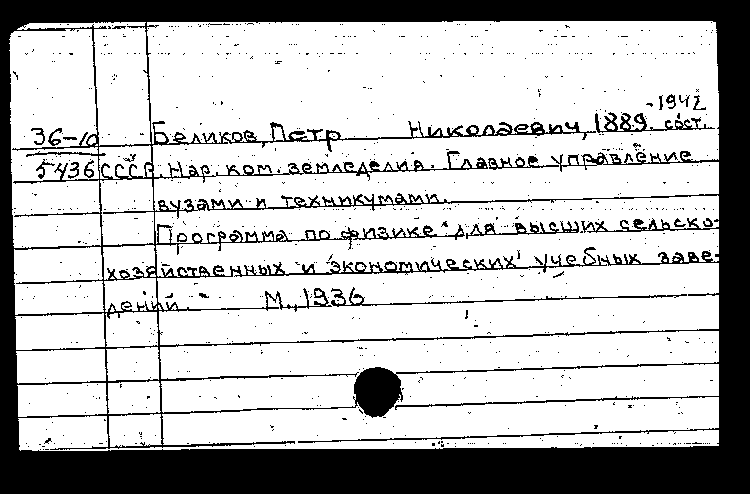 -1942
36-10 Беликов, Петр Николаевич, 1889 сост.
5436 СССР. Нар. ком. земледелия. Главное управление
вузами и техникумами.
Программа по физике для высших сельско-
хозяйственных и экономических учебных заве-
дений. М., 1936